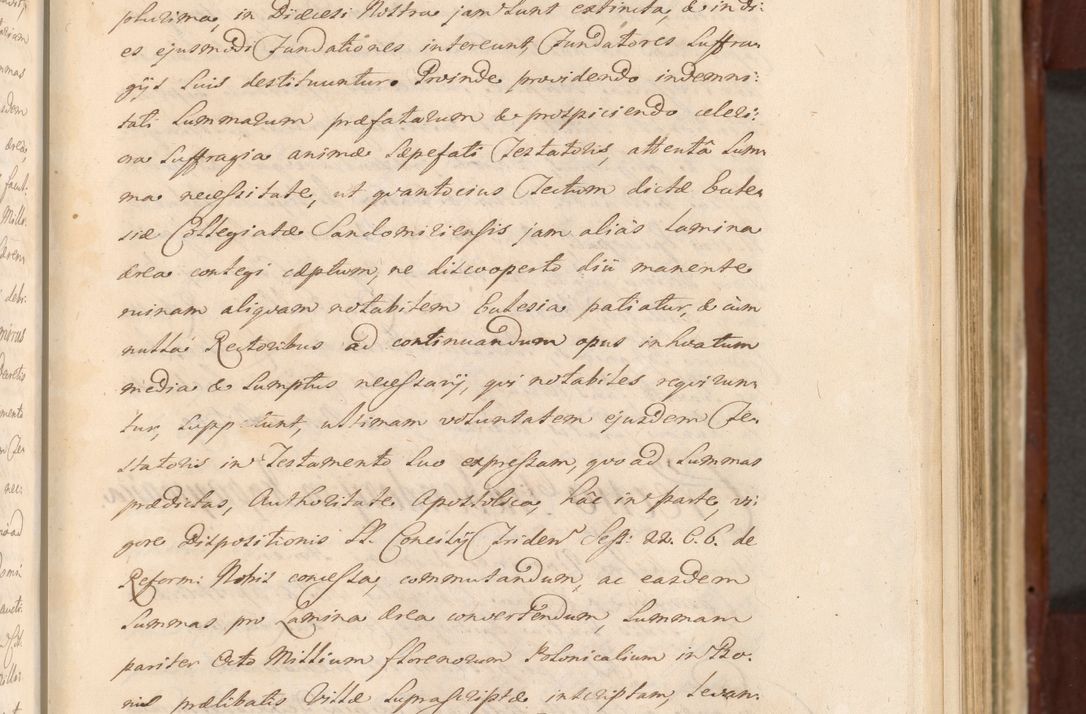 plurima, in Diæcesi Nostra jam sunt extincta, & in di:
es ejusmodi Fundationes intereunt, Fundatores Suffra:
gijs suis destituuntur. Proinde providendo indemni:
tati Summarum præfatarum & prospiciendo celeri:
ora Suffragia animæ sæpefati Testatoris, attentâ Sum:
ma necessitate, ut quantocius Tectum dictæ Eccle:
siæ Collegiatæ Sandomiriensis jam aliàs Lamina
ærea contegi cæptum, ne discooperto diù manente
ruinam aliquam notabilem Ecclesia patiatur, & cùm
nulla Rectoribus ad continuandum opus inhoatum
media & Sumptus necessarij, qui notabiles requirun:
tur, Suppetunt, ultimam voluntatem ejusdem Te:
statoris in Testamento Suo expressam, quo ad Summas
prædictas, Authoritate Apostolica, hac in parte, vi:
gore Dispositionis SS. Concilij Triden. Sess: 22. C. 6. de
Reform: Nobis concessa, commutandum, ac easdem
Summas pro Lamina ærea convertendum, Summam
pariter Octo Millium florenorum Polonicalium in Bo:
nis prælibatis Villæ Suprascriptæ inscriptam, levan: